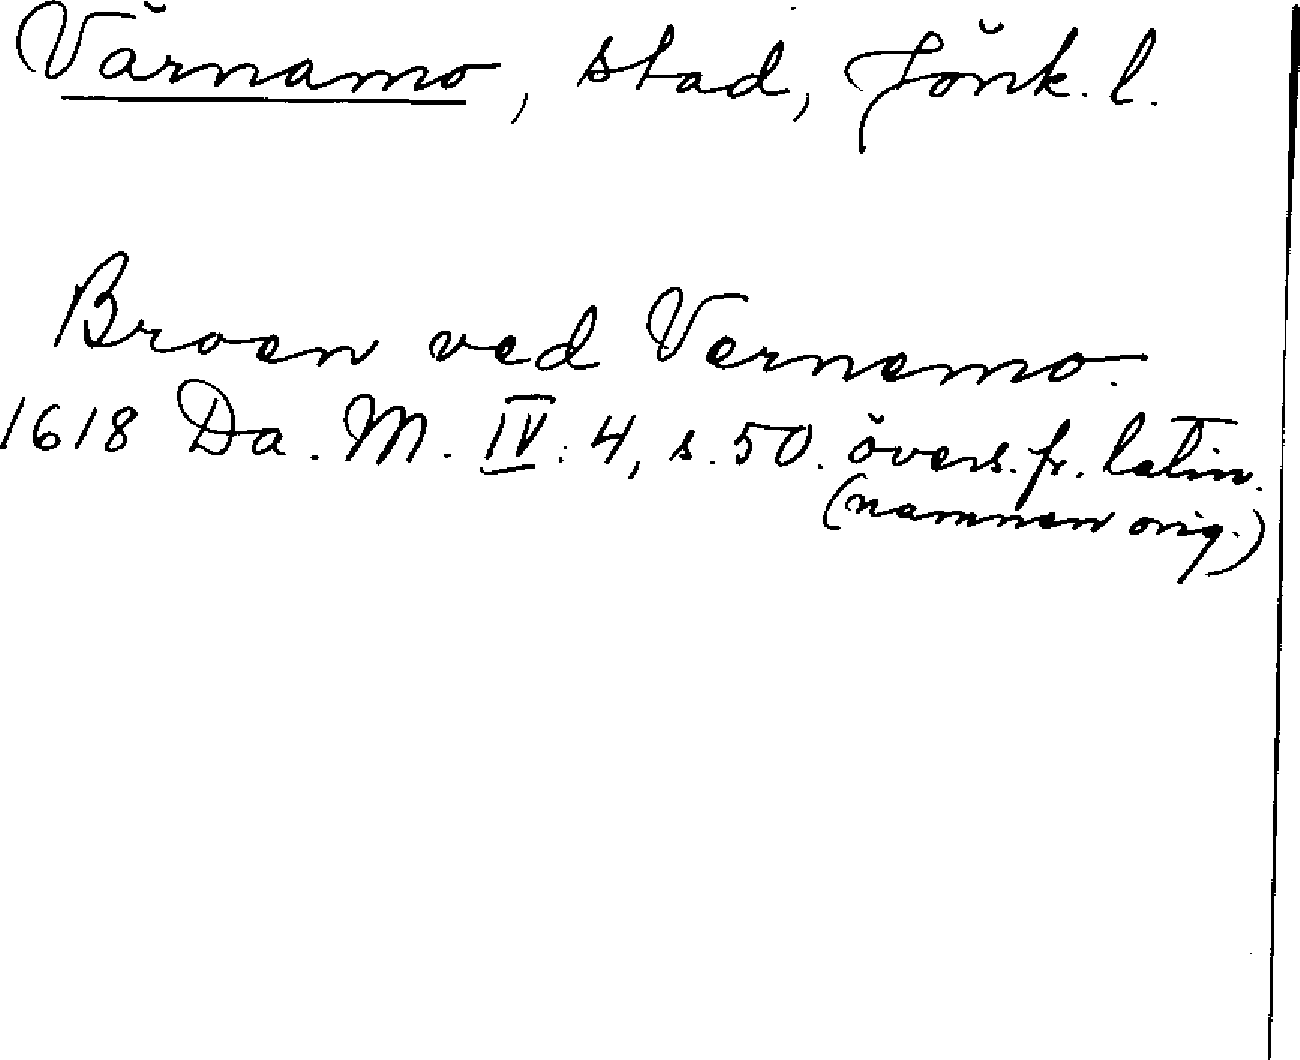 Värnamo, stad, Jönk. l.
Broen ved Vernemo.
1618 Da. M. IV: 4, s. 50. övers. fr. latin.
(namnen orig.)